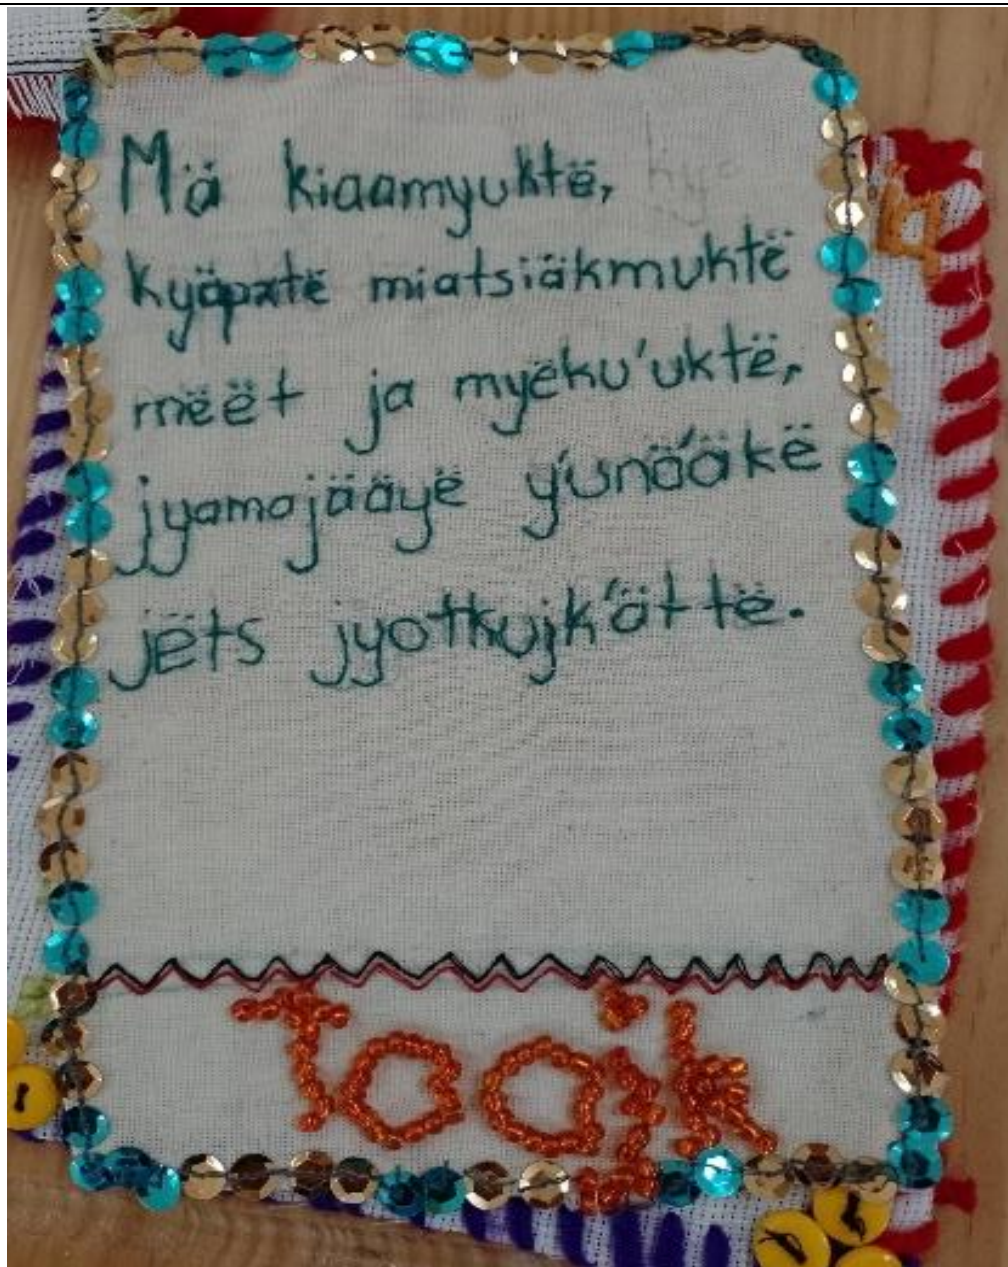 Mä kiaamyuktë,
kyäpxtë miatsiäkmuktë
mëët ja myëku'uktë,
jyamajääyë y'unä'äkë
jëts jyotkujk'ättë.
Taajk